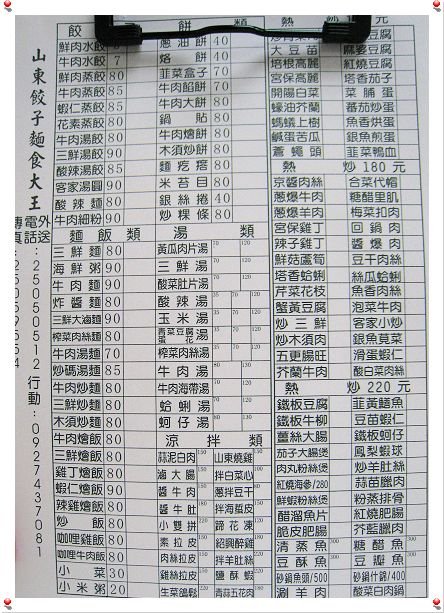 山東餃子麵食大王
外送電話:25050512 行動:0927437081
餃
鮮肉水餃
牛肉水餃 7
鮮肉蒸餃 80
牛肉蒸餃 85
蝦仁蒸餃 85
花素蒸餃 80
牛肉湯餃 90
三鮮湯餃 90
酸辣湯餃 85
客家湯圓 90
酸辣麵 80
牛肉細粉 90
麵飯類
三鮮麵 80
海鮮粥 90
牛肉麵 90
炸醬麵 80
三鮮大滷麵 90
榨菜肉絲麵 80
牛肉湯麵 70
炒碼湯麵 85
牛肉炒麵 80
三鮮炒麵 80
木須炒麵 80
牛肉燴飯 80
三鮮燴飯 80
雞丁燴飯 80
蝦仁燴飯 90
辣雞燴飯 80
炒飯 80
咖哩雞飯 80
咖哩牛肉飯 80
小菜 30
小米粥 20
餅
蔥油餅 40
烙餅 40
韮菜盒子 70
牛肉餡餅 70
牛肉大餅 80
鍋貼 80
牛肉燴餅 80
木須炒餅 80
麵疙瘩 80
米苔目 80
銀絲捲 40
炒粿條 80
湯類
黃瓜肉片湯
三鮮湯
酸菜肚片湯
酸辣湯
玉米湯
青菜豆腐湯
蛋花湯
榨菜肉絲湯
牛肉湯
牛肉海帶湯
蛤蜊湯
蚵仔湯
涼拌類
蒜泥白肉 山東燒雞
滷大腸 拌白菜心
醬牛肉 蔥拌豆干
醬牛肚 拌海蜇皮
小雙拼 蹄花凍
素拉皮 紹興醉雞
肉絲拉皮 拌羊肚絲
雞絲拉皮 鹽酥蝦
生菜鴿鬆 青蒜五花肉
熱
大豆苗 麻婆豆腐
培根高麗 紅燒豆腐
宮保高麗 塔香茄子
開陽白菜 菜脯蛋
蠔油芥蘭 番茄炒蛋
螞蟻上樹 魚香烘蛋
鹹蛋苦瓜 銀魚煎蛋
蒼蠅頭 韮菜鴨血
熱炒180元
京醬肉絲 合菜代帽
蔥爆牛肉 糖醋里肌
蔥爆羊肉 梅菜扣肉
宮保雞丁 回鍋肉
辣子雞丁 醬爆肉
鮮菇蘆筍 豆干肉絲
塔香蛤蜊 絲瓜蛤蜊
芹菜花枝 魚香肉絲
蟹黃豆腐 泡菜牛肉
炒三鮮 客家小炒
炒木須肉 銀魚莧菜
五更腸旺 滑蛋蝦仁
芥蘭牛肉 酸白菜肉絲
熱炒220元
鐵板豆腐 韮黃鱔魚
鐵板牛柳 豆苗蝦仁
薑絲大腸 鐵板蚵仔
茄子大腸煲 鳳梨蝦球
肉丸粉絲煲 炒羊肚絲
紅燒海參/280 蒜苗臘肉
鮮蝦粉絲煲 粉蒸排骨
醋溜魚片 紅燒肥腸
脆皮肥腸 芥藍臘肉
清蒸魚 糖醋魚
豆酥魚 豆瓣魚
砂鍋魚頭/500 砂鍋什錦/400
涮羊肉 酸菜白肉鍋